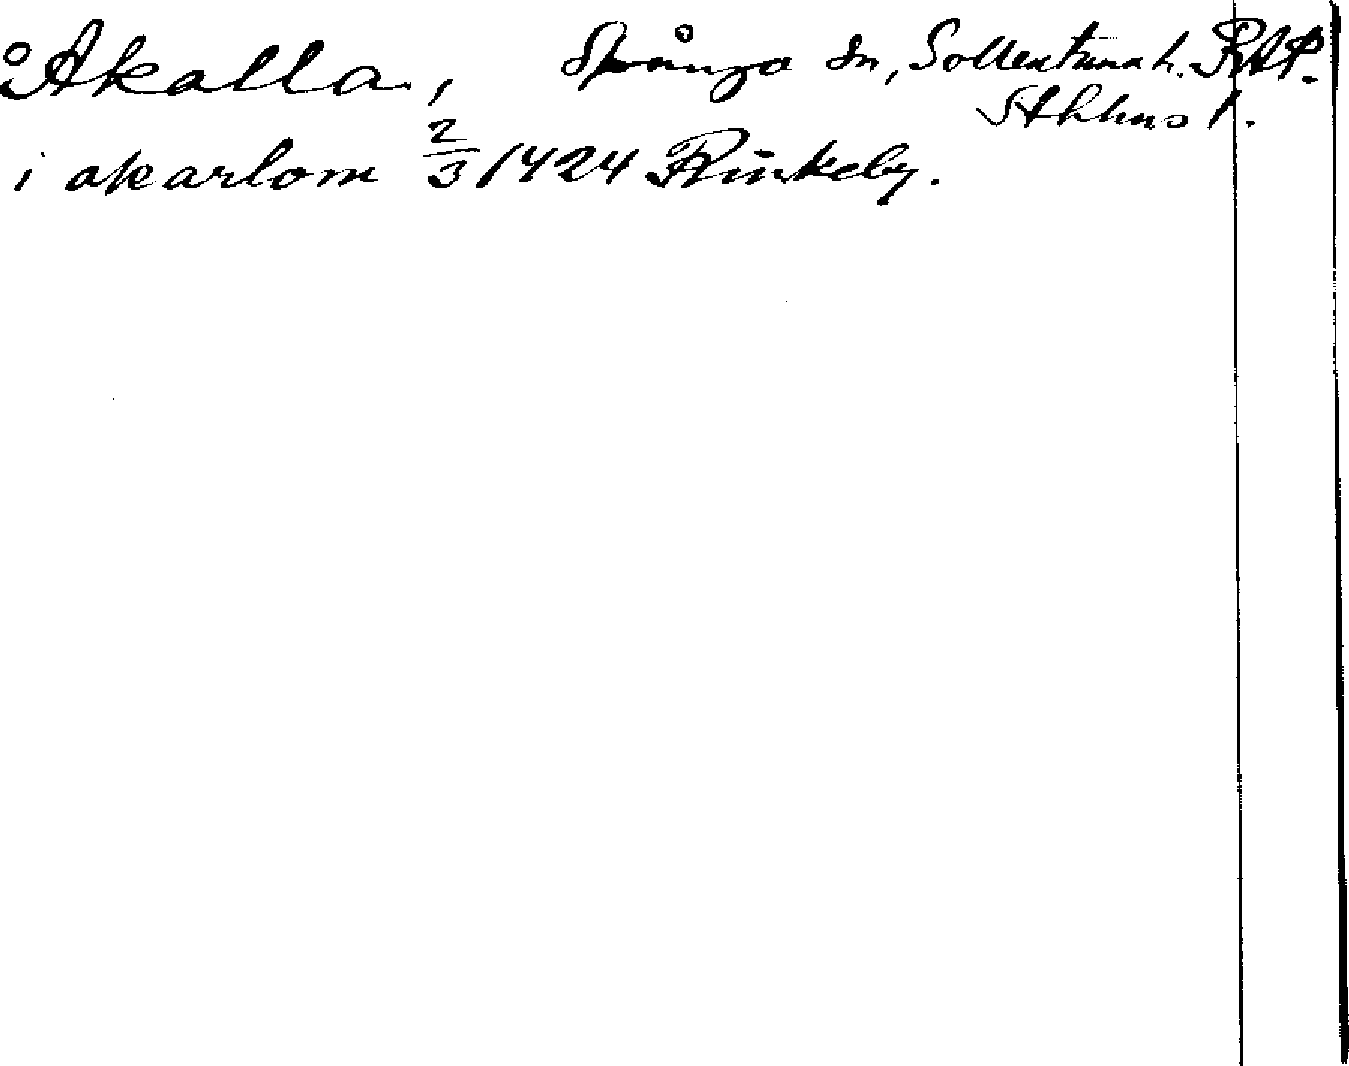 Åkalla, Spånga sn, Sollentuna h. RAP.
Sthlms l.
i akarlom 2/3 1424 Rinkeby.